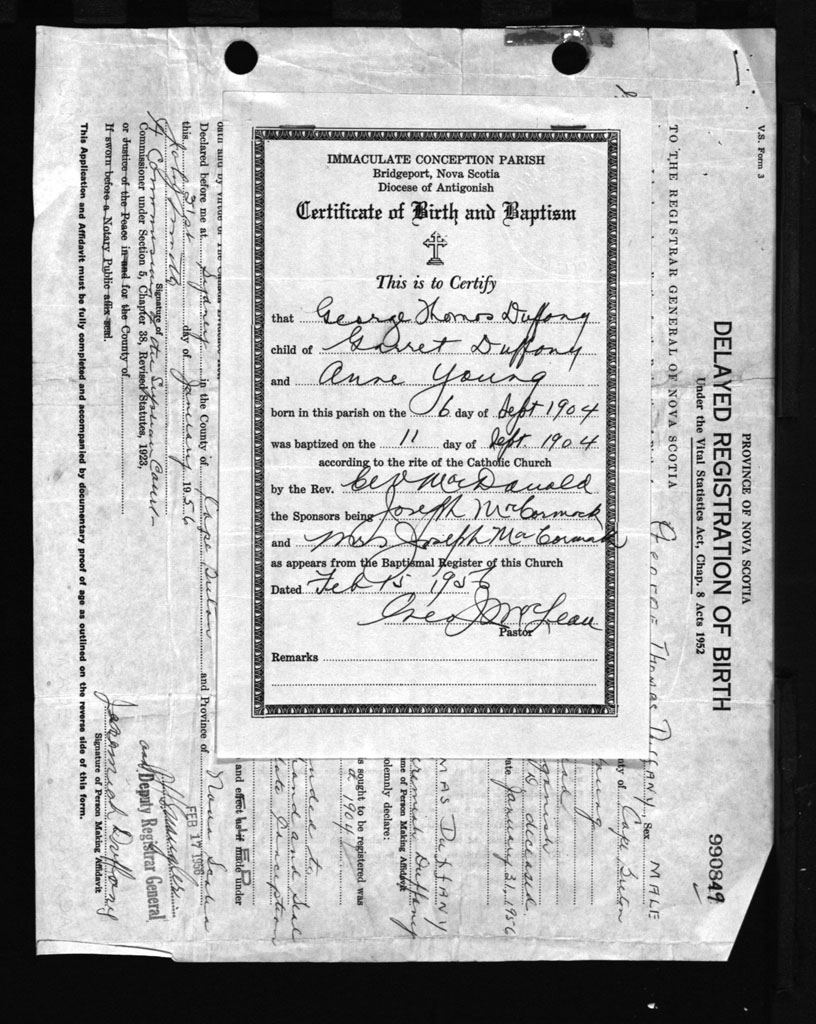 IMMACULATE CONCEPTION PARISH
Bridgeport, Nova Scotia
Diocese of Antigonish
Certificate of Birth and Baptism
This is to Certify
that George Thomas Duffany
child of Garret Duffany
and Anne Young
born in this parish on the 6 day of Sept 1904
was baptized on the 11 day of Sept. 1904
according to the rite of the Catholic Church
by the Rev. MacDonald
the Sponsors being Joseph McCormack
and Mrs Joseph MacCormack
as appears from the Baptismal Register of this Church
Dated Feb 15 1956
Geo J McLean
Pastor
Remarks
V.S. Form 3
PROVINCE OF NOVA SCOTIA
DELAYED REGISTRATION OF BIRTH
990849
Under the Vital Statistics Act, Chap. 8 Acts 1952
TO THE REGISTRAR GENERAL OF NOVA SCOTIA
GEORGE THOMAS DUFFANY Sex MALE
ty of Cape Breton
Young
deceased
ate January 31, 1956
MAS DUFFANY
eremiah Duffany
me of Person Making Affidavit
olemnly declare:
s sought to be registered was
1904
nded to
hand and Seal
late Conception
and effect as if made under
oath and by virtue of The Canada Evidence Act.
Declared before me at Sydney in the County of Cape Breton and Province of Nova Scotia
this 31st day of January 1956
FEB 17 1956
Deputy Registrar General
Signature of
A Commissioner of the Supreme Court
Commissioner under Section 5, Chapter 38, Revised Statutes, 1923,
or Justice of the Peace in and for the County of
If sworn before a Notary Public affix seal.
Jeremiah Duffany
Signature of Person Making Affidavit
This Application and Affidavit must be fully completed and accompanied by documentary proof of age as outlined on the reverse side of this form.